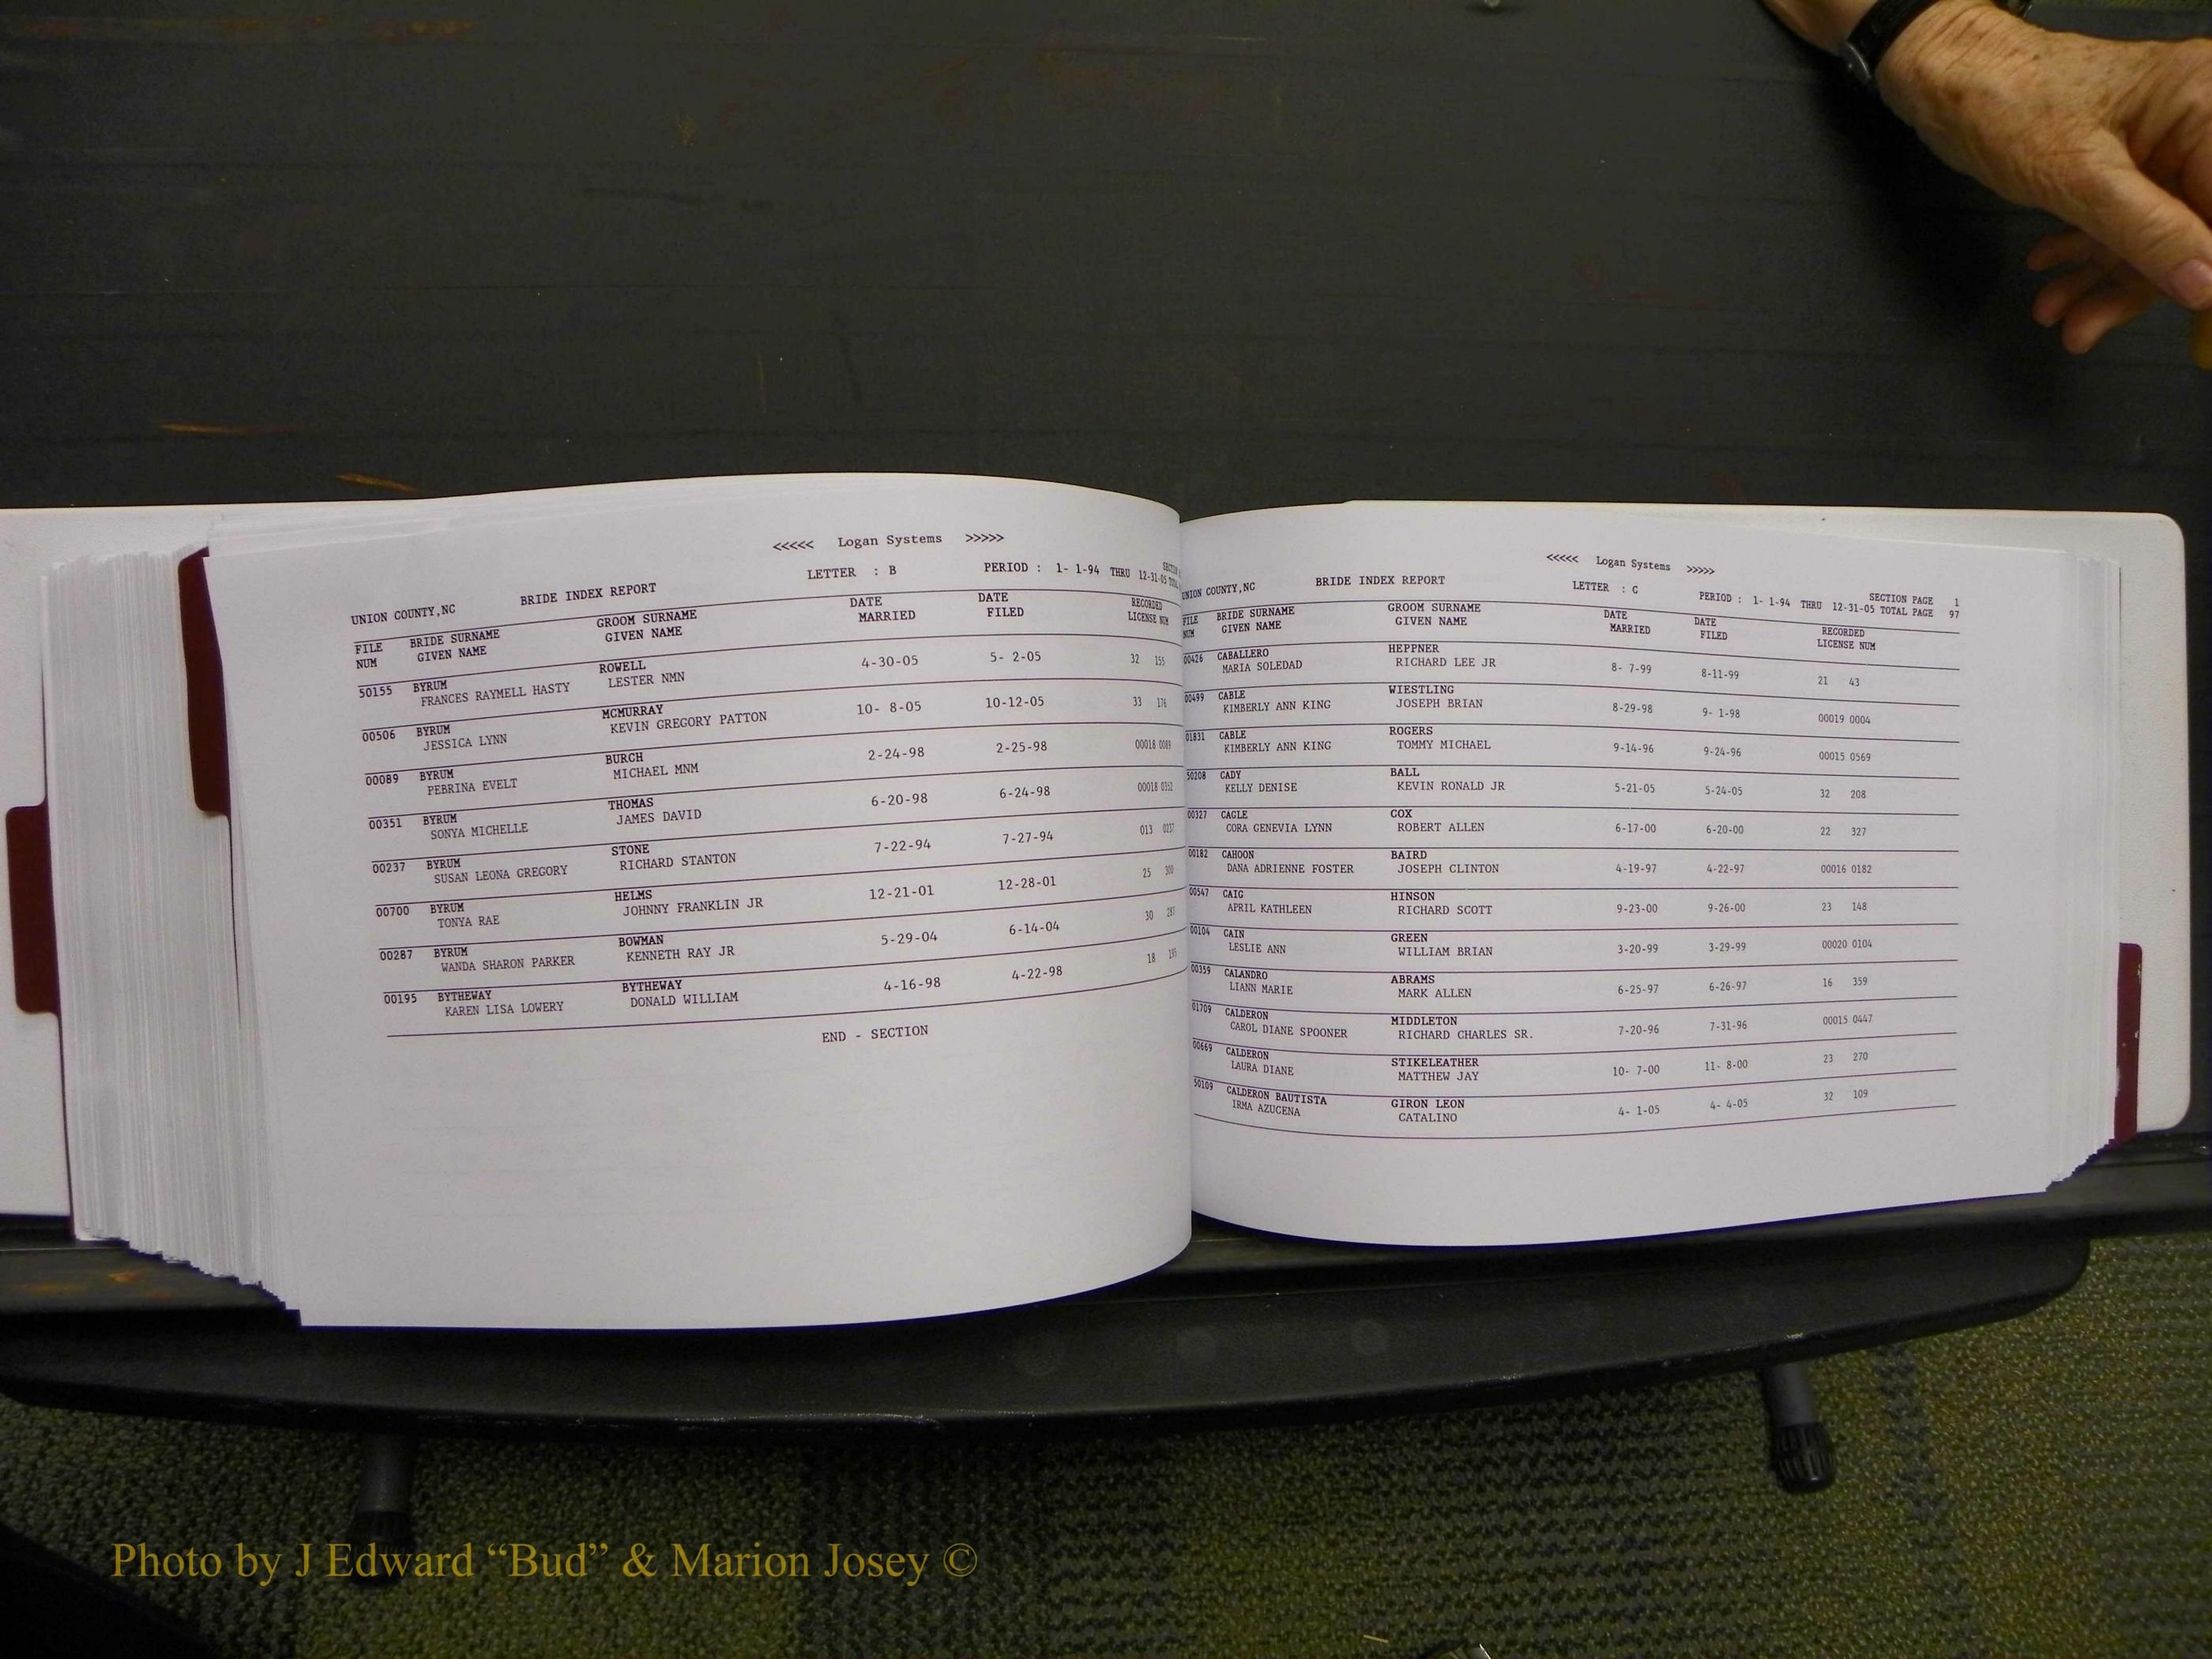 <<<<< Logan Systems >>>>>
UNION COUNTY,NC BRIDE INDEX REPORT LETTER : B PERIOD : 1- 1-94 THRU 12-31-05
FILE BRIDE SURNAME GROOM SURNAME DATE DATE RECORDED
NUM GIVEN NAME GIVEN NAME MARRIED FILED LICENSE NUM
50155 BYRUM ROWELL 4-30-05 5- 2-05 32 155
FRANCES RAYMELL HASTY LESTER NMN
00506 BYRUM MCMURRAY 10- 8-05 10-12-05 33 176
JESSICA LYNN KEVIN GREGORY PATTON
00089 BYRUM BURCH 2-24-98 2-25-98 00018 0089
PEBRINA EVELT MICHAEL MNM
00351 BYRUM THOMAS 6-20-98 6-24-98 00018
SONYA MICHELLE JAMES DAVID
00237 BYRUM STONE 7-22-94 7-27-94 013
SUSAN LEONA GREGORY RICHARD STANTON
00700 BYRUM HELMS 12-21-01 12-28-01 25
TONYA RAE JOHNNY FRANKLIN JR
00287 BYRUM BOWMAN 5-29-04 6-14-04 30
WANDA SHARON PARKER KENNETH RAY JR
00195 BYTHEWAY BYTHEWAY 4-16-98 4-22-98 18 195
KAREN LISA LOWERY DONALD WILLIAM
END - SECTION
<<<<< Logan Systems >>>>>
UNION COUNTY,NC BRIDE INDEX REPORT LETTER : C SECTION PAGE 1
PERIOD : 1- 1-94 THRU 12-31-05 TOTAL PAGE 97
FILE BRIDE SURNAME GROOM SURNAME DATE DATE RECORDED
NUM GIVEN NAME GIVEN NAME MARRIED FILED LICENSE NUM
00426 CABALLERO HEPPNER 8- 7-99 8-11-99 21 43
MARIA SOLEDAD RICHARD LEE JR
00499 CABLE WIESTLING 8-29-98 9- 1-98 00019 0004
KIMBERLY ANN KING JOSEPH BRIAN
01831 CABLE ROGERS 9-14-96 9-24-96 00015 0569
KIMBERLY ANN KING TOMMY MICHAEL
50208 CADY BALL 5-21-05 5-24-05 32 208
KELLY DENISE KEVIN RONALD JR
00327 CAGLE COX 6-17-00 6-20-00 22 327
CORA GENEVIA LYNN ROBERT ALLEN
00182 CAHOON BAIRD 4-19-97 4-22-97 00016 0182
DANA ADRIENNE FOSTER JOSEPH CLINTON
00547 CAIG HINSON 9-23-00 9-26-00 23 148
APRIL KATHLEEN RICHARD SCOTT
00104 CAIN GREEN 3-20-99 3-29-99 00020 0104
LESLIE ANN WILLIAM BRIAN
00359 CALANDRO ABRAMS 6-25-97 6-26-97 16 359
LIANN MARIE MARK ALLEN
01709 CALDERON MIDDLETON 7-20-96 7-31-96 00015 0447
CAROL DIANE SPOONER RICHARD CHARLES SR.
00669 CALDERON STIKELEATHER 10- 7-00 11- 8-00 23 270
LAURA DIANE MATTHEW JAY
50109 CALDERON BAUTISTA GIRON LEON 4- 1-05 4- 4-05 32 109
IRMA AZUCENA CATALINO
Photo by J Edward “Bud” & Marion Josey ©